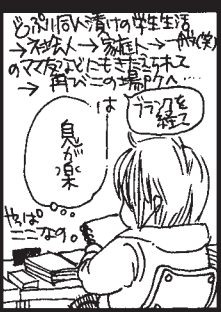 どっぷり同人漬けの学生生活
→社会人→家庭人→
のママ友などにもきたえられて
→再びこの場所へ…
ブランクを
経て
は
息が楽
やっぱ
ここなの。